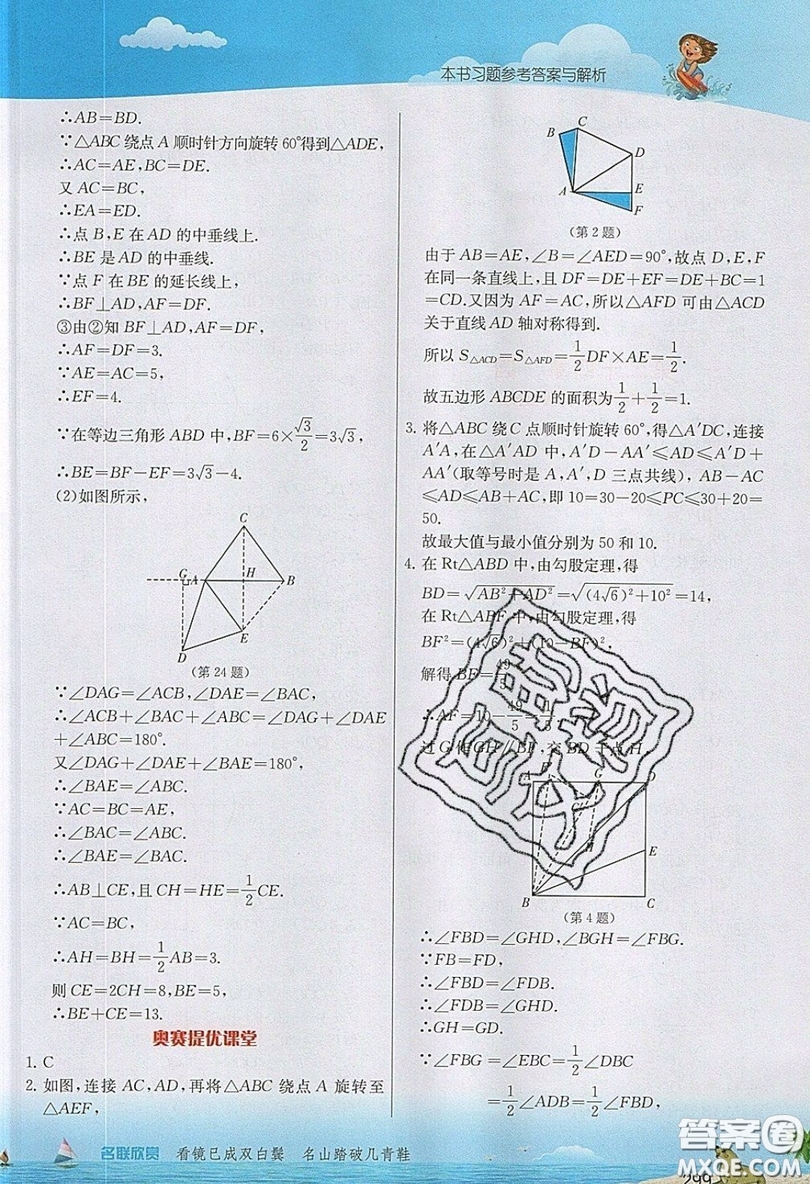 本书习题参考答案与解析
∴AB=BD.
∵△ABC绕点A顺时针方向旋转60°得到△ADE,
∴AC=AE,BC=DE.
又AC=BC,
∴EA=ED.
∴点B,E在AD的中垂线上.
∴BE是AD的中垂线.
∵点F在BE的延长线上,
∴BF⊥AD,AF=DF.
③由②知BF⊥AD,AF=DF.
∴AF=DF=3.
∵AE=AC=5,
∴EF=4.
∵在等边三角形ABD中,BF=6×√3/2=3√3,
∴BE=BF-EF=3√3-4.
(2)如图所示,
C
G A H B
E
D
(第24题)
∵∠DAG=∠ACB,∠DAE=∠BAC,
∴∠ACB+∠BAC+∠ABC=∠DAG+∠DAE
+∠ABC=180°.
又∠DAG+∠DAE+∠BAE=180°,
∴∠BAE=∠ABC.
∵AC=BC=AE,
∴∠BAC=∠ABC.
∴∠BAE=∠BAC.
∴AB⊥CE,且CH=HE=1/2CE.
∵AC=BC,
∴AH=BH=1/2AB=3.
则CE=2CH=8,BE=5,
∴BE+CE=13.
奥赛提优课堂
1. C
2. 如图,连接AC,AD,再将△ABC绕点A旋转至
△AEF,
B C
D
A E
F
(第2题)
由于AB=AE,∠B=∠AED=90°,故点D,E,F
在同一条直线上,且DF=DE+EF=DE+BC=1
=CD.又因为AF=AC,所以△AFD可由△ACD
关于直线AD轴对称得到.
所以S△ACD=S△AFD=1/2DF×AE=1/2.
故五边形ABCDE的面积为1/2+1/2=1.
3. 将△ABC绕C点顺时针旋转60°,得△A′DC,连接
A′A,在△A′AD中,A′D-AA′≤AD≤A′D+
AA′(取等号时是A,A′,D三点共线),AB-AC
≤AD≤AB+AC,即10=30-20≤PC≤30+20=
50.
故最大值与最小值分别为50和10.
4. 在Rt△ABD中,由勾股定理,得
BD=√(AB²+AD²)=√((4√6)²+10²)=14,
在Rt△ABF中,由勾股定理,得
BF²=(4√6)²+(10-BF)²,
解得BF=49/5.
∴AF=10-49/5=1/5.
过G作GH∥BF,交BD于点H
E
B C
(第4题)
∴∠FBD=∠GHD,∠BGH=∠FBG.
∵FB=FD,
∴∠FBD=∠FDB.
∴∠FDB=∠GHD.
∴GH=GD.
∵∠FBG=∠EBC=1/2∠DBC
=1/2∠ADB=1/2∠FBD,
名联欣赏 看镜已成双白鬓 名山踏破几青鞋
答案圈
MXQE.COM